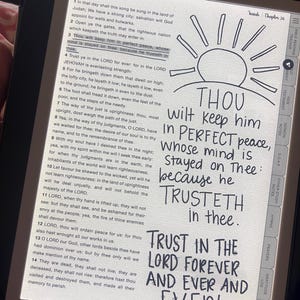 Isaiah | Chapter 26
1 In that day shall this song be sung in the land of
Judah; We have a strong city; salvation will God
appoint for walls and bulwarks.
2 Open ye the gates, that the righteous nation
which keepeth the truth may enter in.
3 Thou wilt keep him in perfect peace, whose
mind is stayed on thee: because he trusteth in
thee.
4 Trust ye in the LORD for ever: for in the LORD
JEHOVAH is everlasting strength:
5 For he bringeth down them that dwell on high;
the lofty city, he layeth it low; he layeth it low, even
to the ground; he bringeth it even to the dust.
6 The foot shall tread it down, even the feet of the
poor, and the steps of the needy.
7 The way of the just is uprightness: thou, most
upright, dost weigh the path of the just.
8 Yea, in the way of thy judgments, O LORD, have
we waited for thee; the desire of our soul is to thy
name, and to the remembrance of thee.
9 With my soul have I desired thee in the night;
yea, with my spirit within me will I seek thee early:
for when thy judgments are in the earth, the
inhabitants of the world will learn righteousness.
10 Let favour be shewed to the wicked, yet will he
not learn righteousness: in the land of uprightness
will he deal unjustly, and will not behold the
majesty of the LORD.
11 LORD, when thy hand is lifted up, they will not
see: but they shall see, and be ashamed for their
envy at the people; yea, the fire of thine enemies
shall devour them.
12 LORD, thou wilt ordain peace for us: for thou
also hast wrought all our works in us.
13 O LORD our God, other lords beside thee have
had dominion over us: but by thee only will we
make mention of thy name.
14 They are dead, they shall not live; they are
deceased, they shall not rise: therefore hast thou
visited and destroyed them, and made all their
memory to perish.
THOU
wilt keep him
in PERFECT peace,
whose mind is
stayed on Thee:
because he
TRUSTETH
in thee.
TRUST IN THE
LORD FOREVER
AND EVER AND